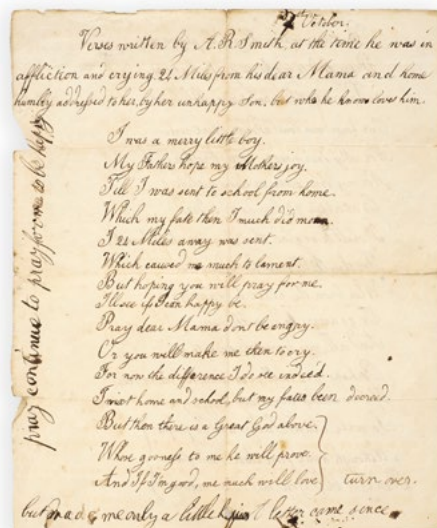 October.
Verses written by A. R. Smith, at the time he was in
affliction and crying 24 Miles from his dear Mama and home
humbly addressed to her, by her unhappy Son, but who he knows loves him.
I was a merry little boy.
My Fathers hope my Mothers joy.
Till I was sent to school from home.
Which my fate then I much did moan.
I 24 Miles away was sent.
Which caused me much to lament.
But hoping you will pray for me.
I'll see if I can happy be.
Pray dear Mama dont be angry.
Or you will make me then to cry.
For now the difference I do see indeed.
Twixt home and school, but my fates been decreed.
But then there is a Great God above.
Whose goodness to me he will prove.
And If I'm good, me much will love
turn over.
but made me only a little letter came since
pray continue to pray for me to be happy